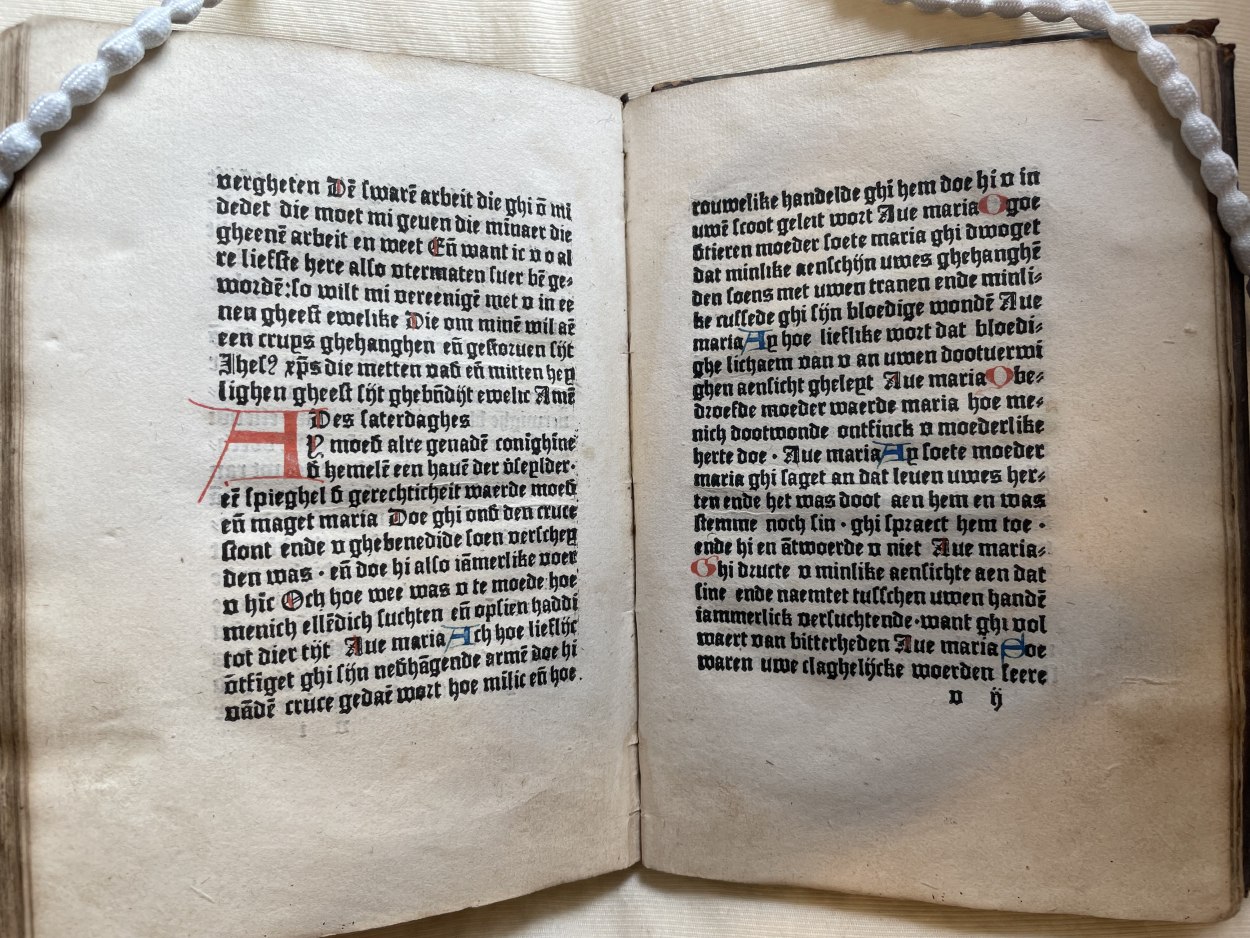 vergheten Dē ſwarē arbeit die ghi ō mi
dedet die moet mi geuen die minaer die
gheenē arbeit en weet Eñ want ic v o al
re liefſte here alſo vtermaten ſuer bē ge⸗
wordē:ſo wilt mi vereenigē met v in ee
nen gheeſt ewelike Die om minē wil aē
een crups ghehanghen eñ geſtoruen ſijt
Jheſꝰ xp̄s die metten vad̄ eñ mitten hey
lighen gheeſt ſijt ghebn̄dijt ewelic Amē
Des ſaterdaghes
AY moed̄ alre genadē conighine
d̄ hemelē een hauē der v̄ſeylder·
er̄ ſpieghel d̄ gerechticheit waerde moed̄
eñ maget maria Doe ghi ond̄ den cruce
ſtont ende v ghebenedide ſoen verſchey
den was · eñ doe hi alſo iāmerlike voer
v hīc Och hoe wee was v te moede hoe
menich ellēdich ſuchten eñ opſien haddi
tot dier tijt Aue maria Ach hoe lieflijc
ōtfīget ghi ſijn ned̄hāgende armē doe hi
vādē cruce gedaē wort hoe mīlic eñ hoe
rouwelike handelde ghi hem doe hi v in
uwē ſcoot geleit wort Aue maria O goe
d̄tieren moeder ſoete maria ghi dwoget
dat minlike aenſchijn uwes ghehanghē
den ſoens met uwen tranen ende minli⸗
ke cuſſede ghi ſijn bloedige wondē Aue
maria Ay hoe lieflike wort dat bloedi⸗
ghe lichaem van v an uwen dootuerwi
ghen aenſicht gheleyt Aue maria O be⸗
droefde moeder waerde maria hoe me⸗
nich dootwonde ontfinck v moederlike
herte doe · Aue maria Ay ſoete moeder
maria ghi ſaget an dat leuen uwes her⸗
ten ende het was doot aen hem en was
ſtemme noch ſin · ghi ſpraect hem toe ·
ende hi en ātwoerde v niet Aue maria⸗
Ghi dructe v minlike aenſichte aen dat
ſine ende naemtet tuſſchen uwen handē
iammerlick verſuchtende·want ghi vol
waert van bitterheden Aue maria Hoe
waren uwe claghelijcke woerden ſeere
v ij